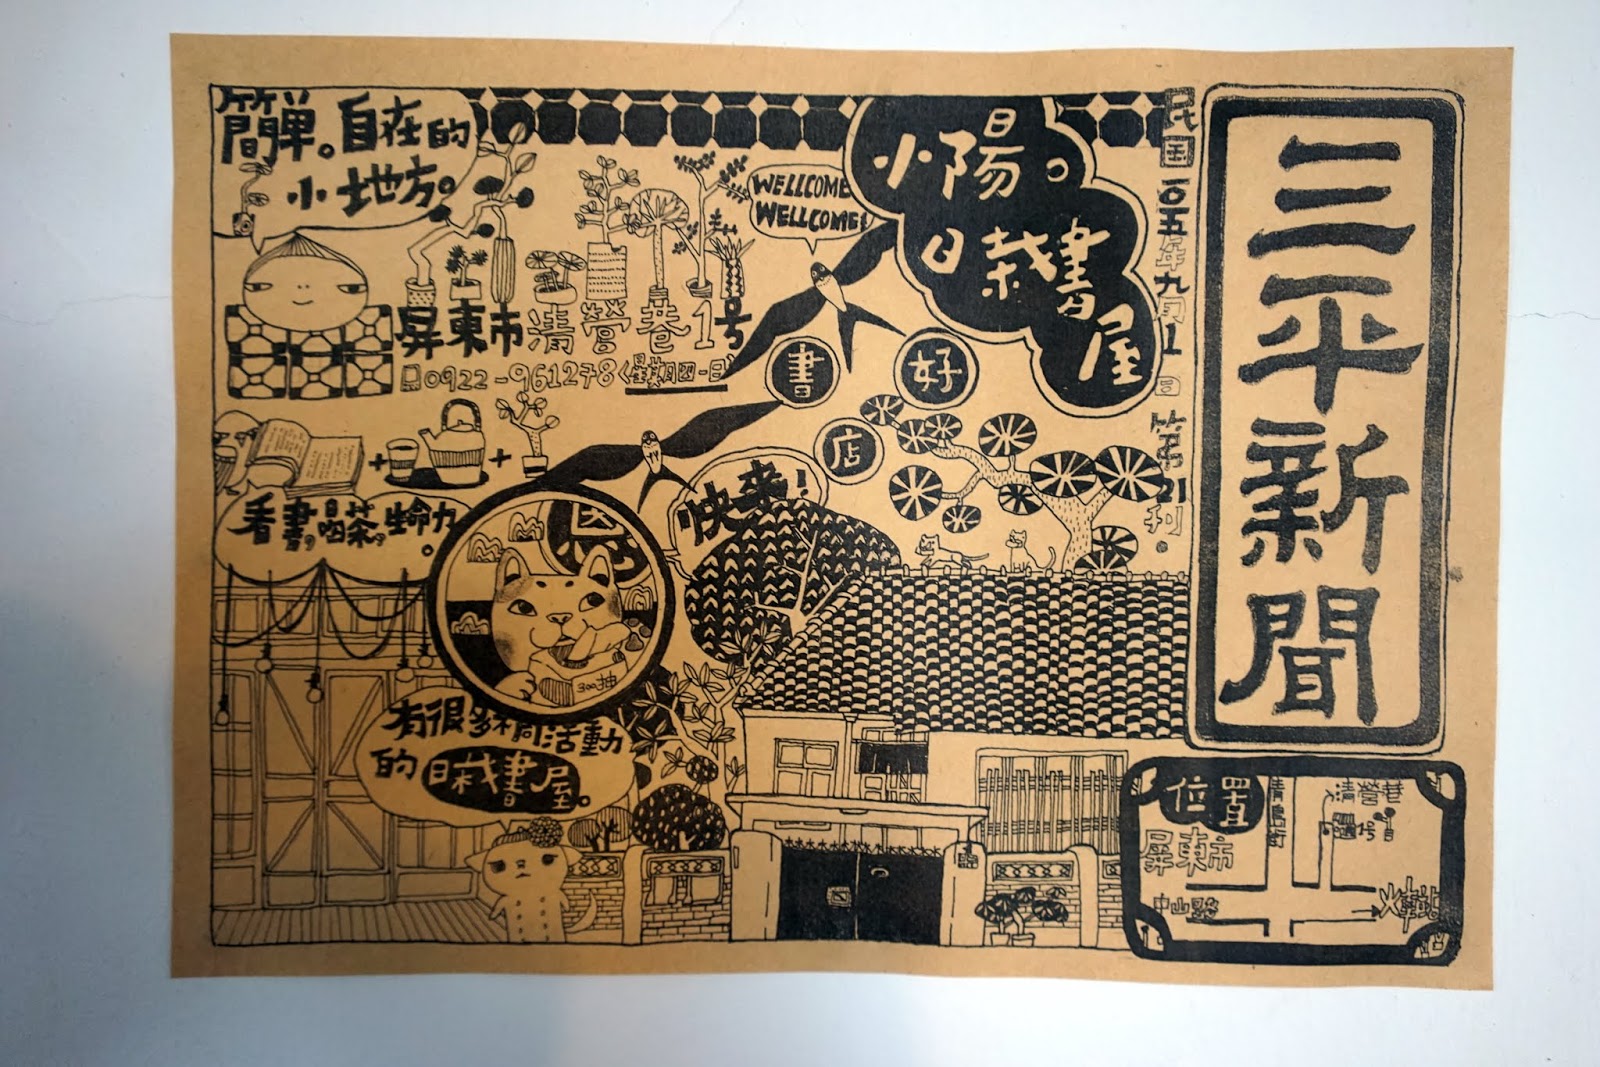 三平新聞
民国一〇五年九月1日 第21刊。
小陽。
日栽書屋
簡單。自在的
小地方。
WELLCOME
WELLCOME!
屏東市清營巷1號
0922-961278(星期四-日)
好
書
店
快來!
看書,喝茶,生命力。
300抽
有很多不同活動
的日栽書屋。
位置
屏東市
中山路
清營巷
1號
火車站